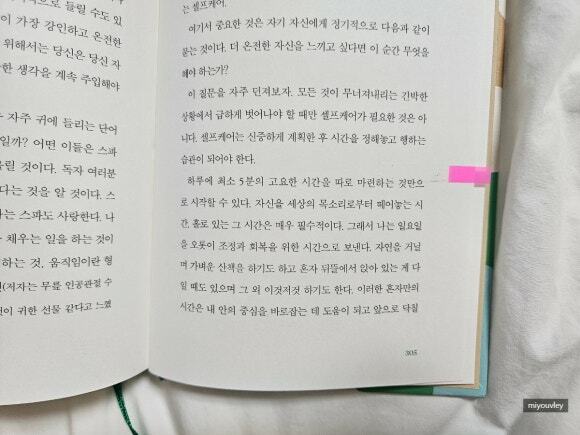 으로 들릴 수도 있
이 가장 강인하고 온전한
위해서는 당신은 당신 자
한 생각을 계속 주입해야
자주 귀에 들리는 단어
일까? 어떤 이들은 스파
올릴 것이다. 독자 여러분
다는 것을 알 것이다. 스
나는 스파도 사랑한다. 나
채우는 일을 하는 것이
하는 것, 움직임이란 형
(저자는 무릎 인공관절 수
것이 귀한 선물 같다고 느꼈
는 셀프케어.
여기서 중요한 것은 자기 자신에게 정기적으로 다음과 같이
묻는 것이다. 더 온전한 자신을 느끼고 싶다면 이 순간 무엇을
해야 하는가?
이 질문을 자주 던져보자. 모든 것이 무너져내리는 긴박한
상황에서 급하게 벗어나야 할 때만 셀프케어가 필요한 것은 아
니다. 셀프케어는 신중하게 계획한 후 시간을 정해놓고 행하는
습관이 되어야 한다.
하루에 최소 5분의 고요한 시간을 따로 마련하는 것만으
로 시작할 수 있다. 자신을 세상의 목소리로부터 떼어놓는 시
간, 홀로 있는 그 시간은 매우 필수적이다. 그래서 나는 일요일
을 오롯이 조정과 회복을 위한 시간으로 보낸다. 자연을 거닐
며 가벼운 산책을 하기도 하고 혼자 뒤뜰에서 앉아 있는 게 다
일 때도 있으며 그 외 이것저것 하기도 한다. 이러한 혼자만의
시간은 내 안의 중심을 바로잡는 데 도움이 되고 앞으로 닥칠
305
miyouvley